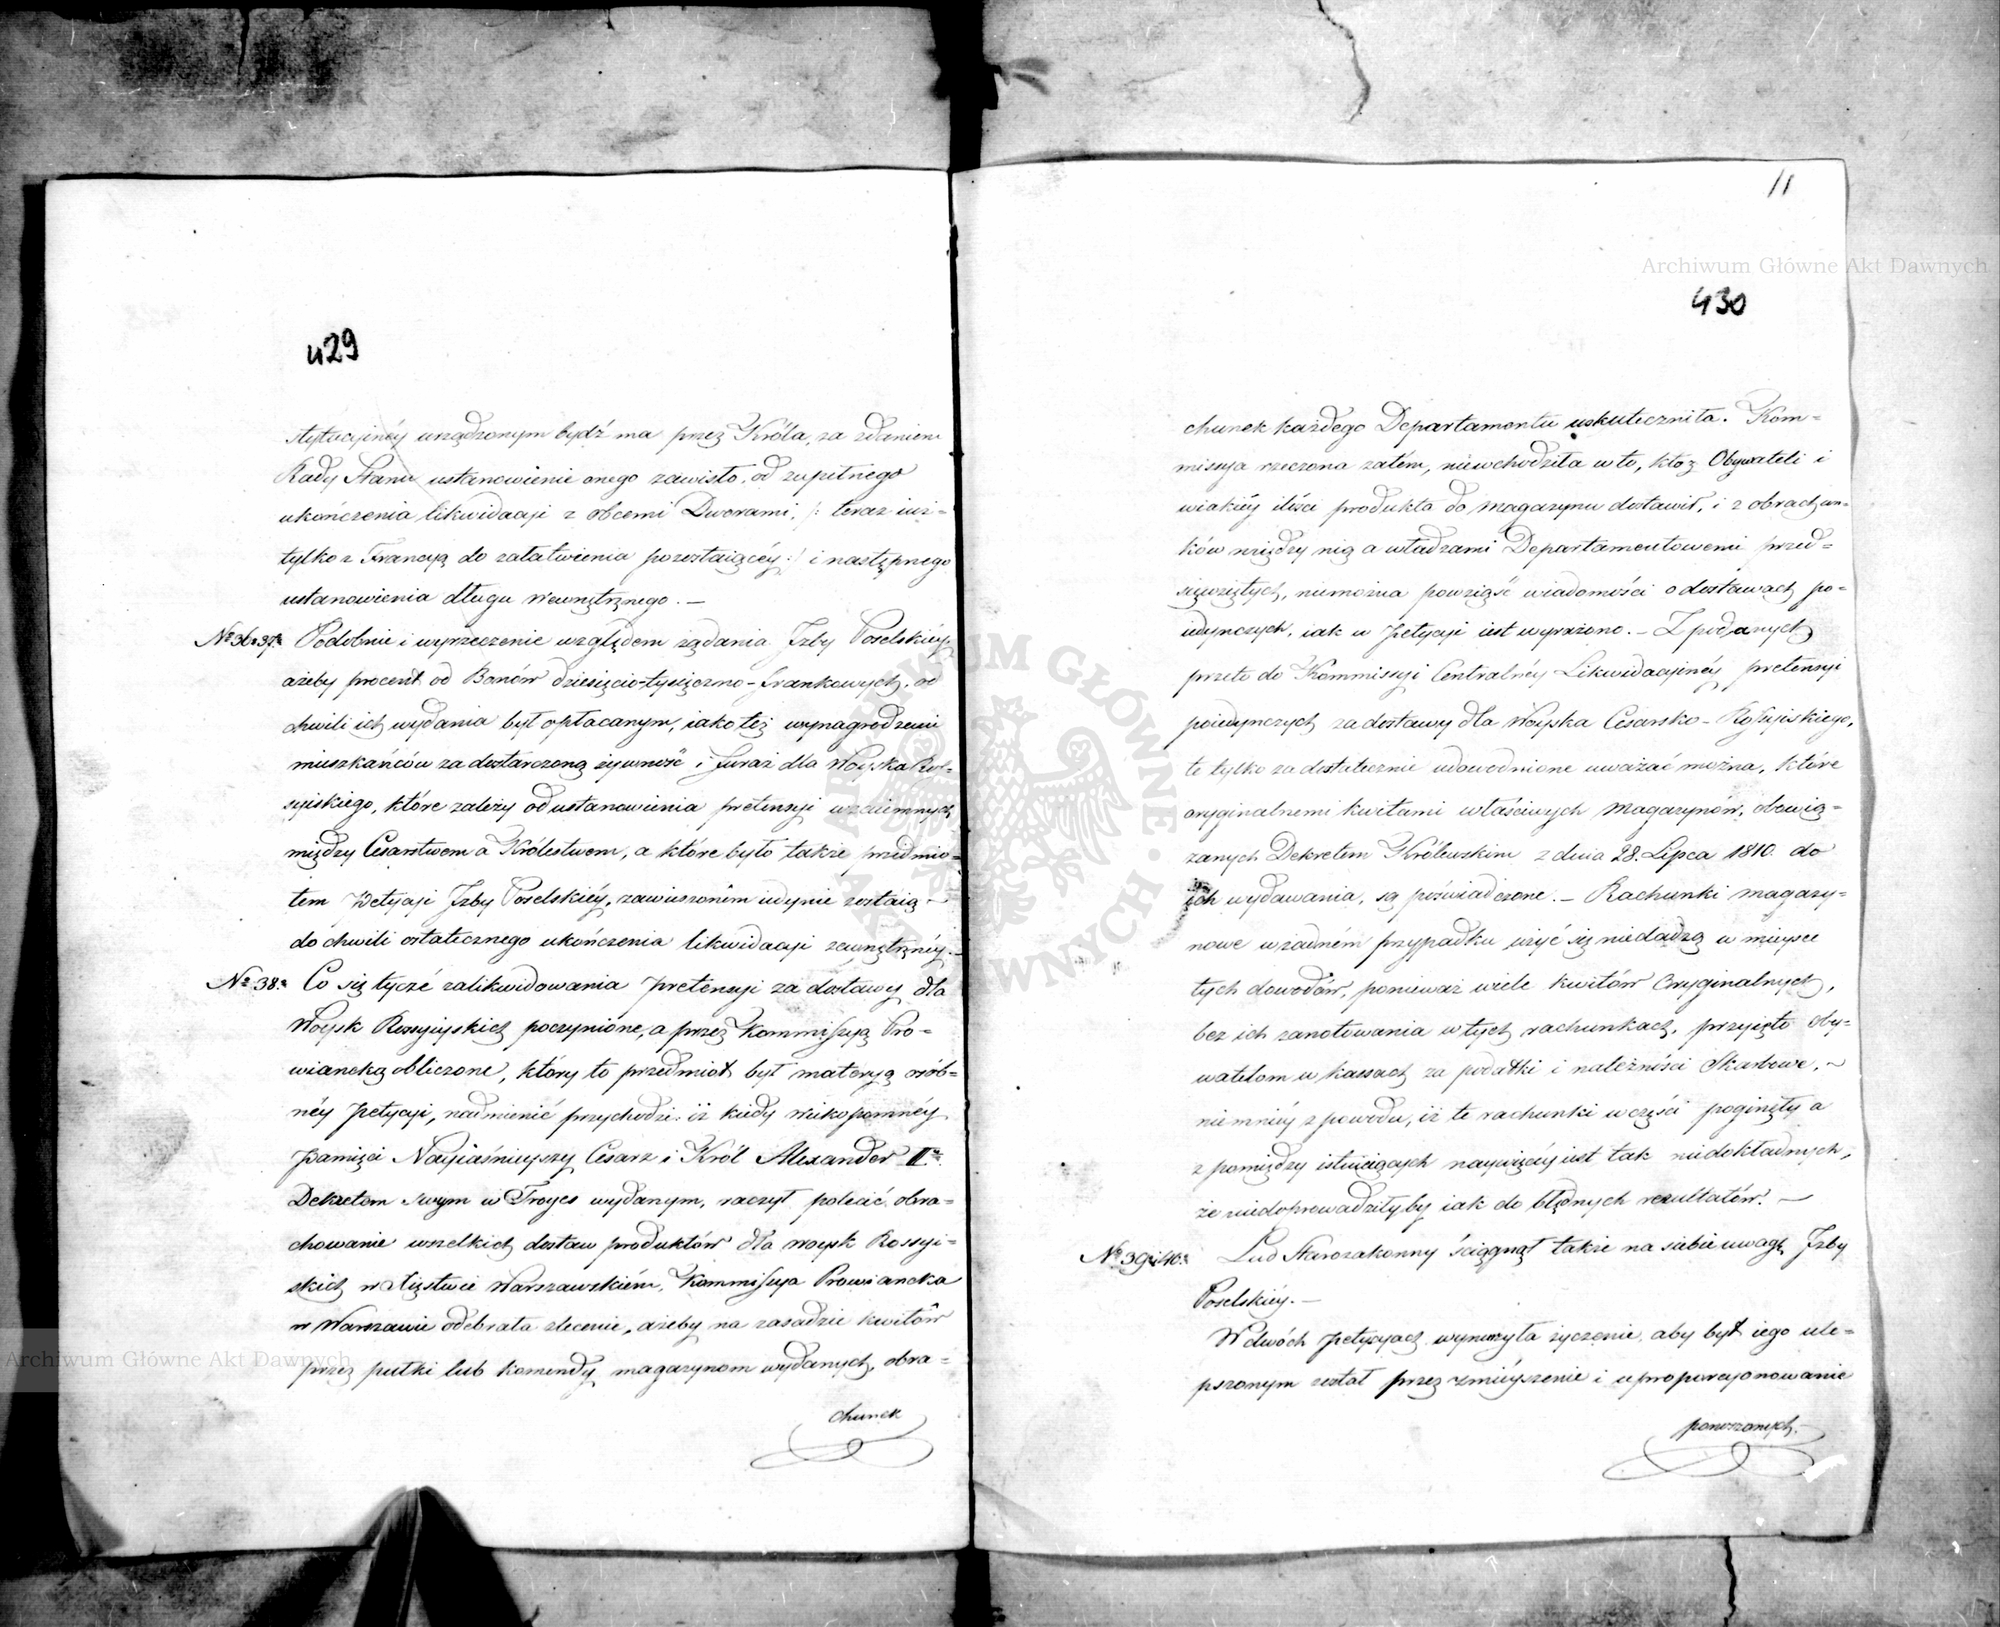 429
stytucyinéy urządzonym bydź ma przez Króla, za zdaniem
Rady Stanu ustanowienie onego zawisło, od zupełnego
ukończenia likwidacyi z obcemi Dworami, /: teraz iuż
tylko z Francyą do załatwienia pozostaiącéy :/ i następnego
ustanowienia długu wewnętrznego. —
Nº 36 37. Podobnie i wyrzeczenie względem żądania Izby Poselskiéy,
ażeby procent od Bonów dziesięcio-tysiączno-frankowych, od
chwili ich wydania był opłacanym, iako też wynagrodzenie
mieszkańców za dostarczoną żywność i furaż dla Woyska Ros-
syiskiego, które zależy od ustanowienia pretensyi wzaiemnych
między Cesarstwem a Królestwem, a które było także przedmio-
tem Petycyi Izby Poselskiéy, zawieszoném iedynie zostaią
do chwili ostatecznego ukończenia likwidacyi zewnętrznéy. —
Nº 38. Co się tycze zalikwidowania pretensyi za dostawy dla
Woysk Rossyiskich poczynione, a przez Kommissyą Pro-
wiancką obliczone, który to przedmiot był materyą osób-
néy petycyi, nadmienić przychodzi: iż kiedy wiekopomnéy
pamięci Nayiaśnieyszy Cesarz i Król Alexander I.
Dekretem swym w Troyes wydanym, raczył polecić obra-
chowanie wszelkich dostaw produktów dla woysk Rossyi-
skich w Xięstwie Warszawskiém, Kommissya Prowiancka
w Warszawie odebrała zlecenie, ażeby na zasadzie kwitów
przez pułki lub komendy magazynom wydanych, obra-
chunek
11
430
chunek każdego Departamentu uskuteczniła. Kom-
missya rzeczona zatém, niewchodziła w to, kto z Obywateli i
w iakiéy ilości produkta do magazynu dostawił, i z obrachun-
ków między nią a władzami Departamentowemi przed-
sięwziętych, niemożna powziąść wiadomości o dostawach po-
iedynczych, iak w petycyi iest wyrażono. — Z podanych
przeto do Kommissyi Centralnéy Likwidacyinéy pretensyi
poiedynczych za dostawy dla Woyska Cesarsko-Rossyiskiego,
te tylko za dostatecznie udowodnione uważać można, które
oryginalnemi kwitami właściwych Magazynów, obowią-
zanych Dekretem Królewskim z dnia 28. Lipca 1810. do
ich wydawania, są poświadczone. — Rachunki magazy-
nowe w żadném przypadku użyć się niedadzą w mieysce
tych dowodów, ponieważ wiele kwitów Oryginalnych,
bez ich zanotowania w tych rachunkach, przyięto oby-
watelom w kassach za podatki i należności Skarbowe, ~
niemniéy z powodu, iż te rachunki w części poginęły a
z pomiędzy istnieiących naywięcéy iest tak niedokładnych,
że niedoprowadziłyby iak do błędnych rezultatów. —
Nº 39 i 40. Lud Starozakonny ściągnął także na siebie uwagę Izby
Poselskiéy. —
W dwóch petycyach wynurzyła życzenie, aby byt iego ule-
pszonym został przez zmnieyszenie i uproporcyonowanie
ponoszonych.
Archiwum Główne Akt Dawnych
Archiwum Główne Akt Dawnych
ARCHIWUM GŁÓWNE AKT DAWNYCH